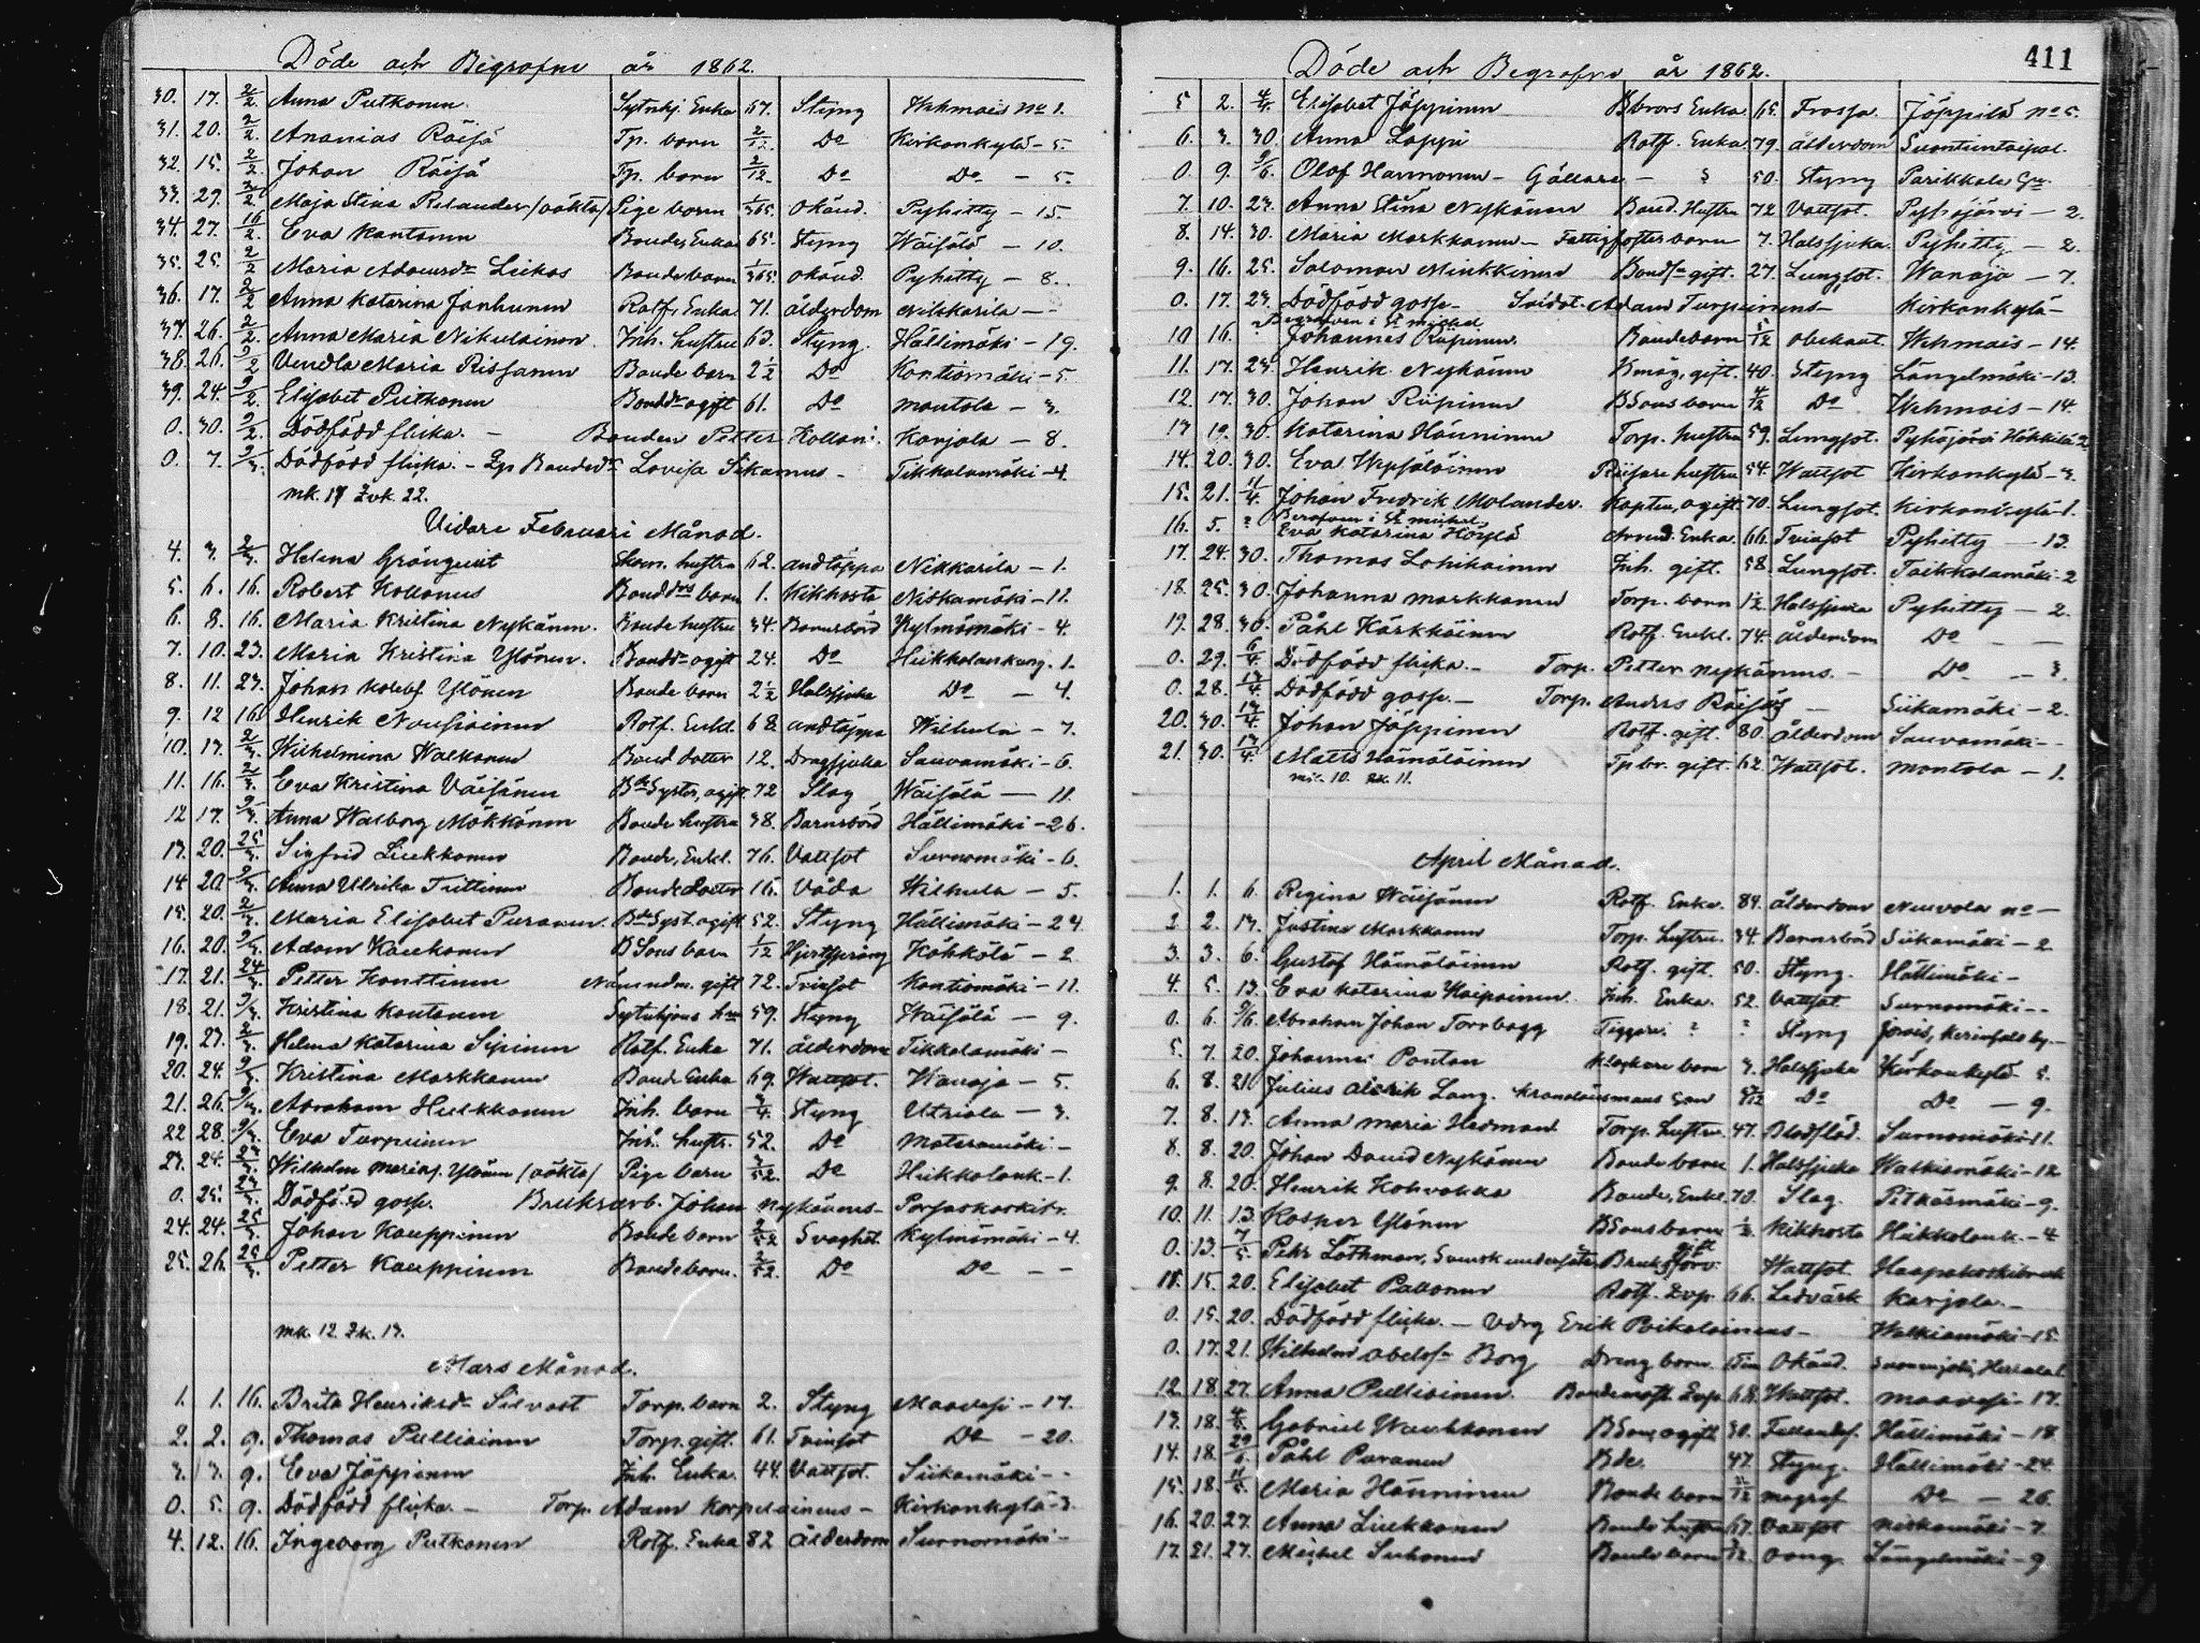 Döde och Begrafne år 1862.
30. 17. 2/2. Anna Putkonen Sytnkj. Enka 67. Styng Wehmais No 1.
31. 20. 2/2. Ananias Räisä Tp. barn 2/12. Do Kirkonkylä - 5.
32. 15. 2/2. Johan Räisä Tp. barn 2/12. Do Do - 5.
33. 29. 2/2 Maja Stina Relander /oäkta/ Pige barn 1/365. Okänd. Pyhitty - 15.
34. 27. 16/2. Eva Kantanen Bondes Enka 65. Styng Wäisälä - 10.
35. 25. 2/2 Maria Adamsdr Liekas Bonde barn 1/365. okänd. Pyhitty - 8.
36. 17. 2/2 Anna Katarina Janhunen Rotf. Enka 71. ålderdom Nikkarila -
37. 26. 2/2. Anna Maria Nikulainen Inh. hustru 63. Styng. Hällimäki - 19.
38. 26. 9/2 Vendla Maria Rissanen Bonde barn 2 1/2 Do Kontiomäki - 5.
39. 24. 9/2. Elisabet Putkonen Bonddr ogift 61. Do Montola - 3.
0. 30. 9/2. Dödfödd flicka. - Bonden Petter Kollani. Konjola - 8.
0. 7. 9/3. Dödfödd flicka. - Bondedr Lovisa Sikamus - Tikkalamäki - 4.
mk. 17 Zvk. 22.
Vidare Februari Månad.
4. 3. 2/3. Helena Grönqvist Skom. hustru 62. andtäppa Nikkarila - 1.
5. 6. 16. Robert Kollanus Bonddrs barn 1. Kikhosta Niskamäki - 11.
6. 8. 16. Maria Kristina Nykänen. Bonde hustru 34. Barnsbörd Kylmämäki - 4.
7. 10. 23. Maria Kristina Ylönen. Bonddr ogift 24. Do Heikkolankang. 1.
8. 11. 23. Johan Ylönen Bonde barn 2 1/2 Halssjuka Do - 4.
9. 12 16. Henrik Nousiainen Rotf. Enkl. 68. andtäppa Wilhula - 7.
10. 13. 2/3. Wilhelmina Walkonen Bond dotter 12. Dragsjuka Sauvamäki - 6.
11. 16. 2/3. Eva Kristina Väisänen Bde Syster, ogift. 72 Slag Wäisälä - 11.
12 17. 9/3. Anna Walborg Mökkönen Bonde hustru 38. Barnsbörd Hällimäki - 26.
13. 20. 25/3. Sigfrid Liukkonen Bonde, Enkl. 76. Vattsot Surnomäki - 6.
14 20. 9/3. Anna Ulrika Tiittinen Bonde dotter 16. Våda Wilhula - 5.
15. 20. 2/3. Maria Elisabet Puranen. Bde Syst. ogift 52. Styng Hällimäki - 24
16. 20. 9/3. Adam Kaukonen B Sons barn 1/12 Hjertsprång Kökkölä - 2.
17. 21. 24/3. Petter Konttinen Nämndm. gift 72. Tvinsot Kontiomäki - 11.
18. 21. 9/3. Kristina Kantanen Sytnhjons 59. Styng Wäisälä - 9.
19. 23. 2/3. Helena Katarina Sipinen Rotf. Enka 71. ålderdom Tikkalamäki -
20. 24. 9/3. Kristina Markkanen Bonde Enka 69. Wattsot. Wanaja - 5.
21. 26. 9/3. Abraham Hulkkonen Inh. barn 3/4. Styng Utriala - 3.
22 28. 9/3. Eva Turpeinen Inh. hustr. 52. Do Materomäki -
23. 24. 23/3. Wilhelm Mariaf. Ylönen /oäkta/ Pige barn 3/52. Do Heikkolank - 1.
0. 25. 23/3. Dödfödd gosse. Bruksarb. Johan Nykänens - Porsaskoskibr.
24. 24. 25/3. Johan Kauppinen Bonde barn 2/52 Svaghet. Kylmämäki - 4.
25. 26. 25/3. Petter Kauppinen Bonde barn. 2/52. Do Do - -
mk. 12. Zk. 13.
Mars Månad.
1. 1. 16. Brita Henriksdr Silvast Torp. barn 2. Styng Maavesi - 17.
2. 2. 9. Thomas Pulliainen Torp. gift. 61. Tvinsot Do - 20.
3. 3. 9. Eva Jäppinen Inh. Enka. 44. Vattsot. Siikamäki - -
0. 5. 9. Dödfödd flicka. - Torp. Adam Korpelainens - Kirkonkylä - 3.
4. 12. 16. Ingeborg Putkonen Rotf. Enka 82 ålderdom Surnomäki -
Döde och Begrafne år 1862.
411
5 2. 4/4. Elisabet Jäppinen B brors Enka. 65. Frossa. Jäppilä No 5.
6. 3. 30. Anna Lappi Rotf. Enka. 79. ålderdom Suontientaipal.
0. 9. 9/6. Olof Hannonen - Gällare - ? 50. Styng Parikkala
7. 10. 23. Anna Stina Nykänen Bond. Hustru 72 Vattsot. Pyhäjärvi - 2.
8. 14. 30. Maria Markkanen - Fattigfoster barn 7. Halssjuka. Pyhitty - 2.
9. 16. 25. Salomon Minkkinen Bondsn gift. 27. Lungsot. Wanaja - 7.
0. 17. 23. Dödfödd gosse - Soldat. Adam Turpeinens - Kirkonkylä -
10 16. ? Begraven i St Mickel Johannes Riipinen. Bonde barn 5/12 obekant. Wehmais - 14.
11. 17. 23. Henrik Nykänen Bmåg, gift. 40. Styng Längelmäki - 13.
12. 17. 30. Johan Riipinen B Sons barn 4/12 Do Wehmais - 14.
13 19. 30. Katarina Hänninen Torp. hustru 59. Lungsot. Pyhäjärvi Häkkilä 2
14. 20. 30. Eva Uppsäläinen hustru 54. Wattsot Kirkonkylä - 3.
15. 21. 11/4. Johan Fredrik Molander. Kapten, ogift. 70. Lungsot. Kirkonkylä - 1.
16. 5. ? Begrafven i St Mickel. Eva Katarina Höylä Arrend. Enka. 66. Tvinsot Pyhitty - 13.
17. 24. 30. Thomas Lahikainen Inh. gift. 58. Lungsot. Taikkalamäki - 2
18. 25. 30. Johanna Markkanen Torp. barn 1 1/2. Halssjuka Pyhitty - 2.
19. 28. 30. Påhl Kärkkäinen Rotf. Enkl. 74. ålderdom Do - -
0. 29. 6/4. Dödfödd flicka. - Torp. Petter Nykänens. - Do - 3.
0. 28. 13/4. Dödfödd gosse. - Torp. Anders Räisäs - Siikamäki - 2.
20. 30. 13/4. Johan Jäppinen Rotf. gift. 80. ålderdom Sauvamäki - -
21. 30. 13/4. Matts Hämäläinen Tpbr. gift. 62. Wattsot. Montola - 1.
mk. 10. Zk. 11.
April Månad.
1. 1. 6. Regina Wäisänen Rotf. Enka. 84. ålderdom Neuvola No -
2 2. 13. Justina Markkanen Torp. hustru. 34. Barnsbörd Siikamäki - 2
3. 3. 6. Gustaf Hämäläinen Rotf. gift. 50. Styng. Hällimäki -
4. 5. 13. Eva Katarina Kaipainen. Inh. Enka. 52. Vattsot. Surnomäki - -
0. 6. 9/6. Abraham Johan Torrbagg Tiggare. ? ? Styng Jorois, Kerisalo by. -
5. 7. 20. Johannes Pontan Klockare barn 3. Halssjuka Kirkonkylä 5.
6. 8. 21. Julius Alarik Lang. Kronolänsmans Son Do Do - 9.
7. 8. 13. Anna Maria Hedman Torp. hustru. 47. Blodflöd. Surnomäki - 11.
8. 8. 20. Johan David Nykänen Bonde barn 1. Halssjuka Watkiamäki - 12
9. 8. 20. Henrik Kohvakka Bonde, Enkl. 70. Slag. Pitkäsmäki - 9.
10. 11. 13. Kasper Ylönen B Sons barn 1/2. Kikhosta Heikkolank. - 4
0. 13. 7/5. Pehr Lothman, Svensk undersåte. Bruks förv. gift Wattsot. Haapakoskibruk
11. 15. 20. Elisabet Pakkonen Rotf. 66. Ledvärk Karjala. -
0. 15. 20. Dödfödd flicka. - Erik Poikolainens - Watkiamäki - 15.
0. 17. 21. Wilhelm Abelsn Borg Dreng barn Okänd.
12. 18. 27. Anna Pulliainen. 68. Wattsot. Maavesi - 17.
13. 18. 4/5. Gabriel Waukkonen B Son, ogift 30. Fallandes. Hällimäki - 18
14. 18. 29/5. Påhl Puranen Bde. 47. Styng. Hällimäki - 24.
15. 18. 11/5. Maria Hänninen Bonde barn 11/12 magref Do - 26.
16. 20. 27. Anna Liukkonen Bonde hustru 67. Vattsot Niskamäki - 7
17. 21. 27. Mickel Suhonen Bonde barn Längelmäki - 9